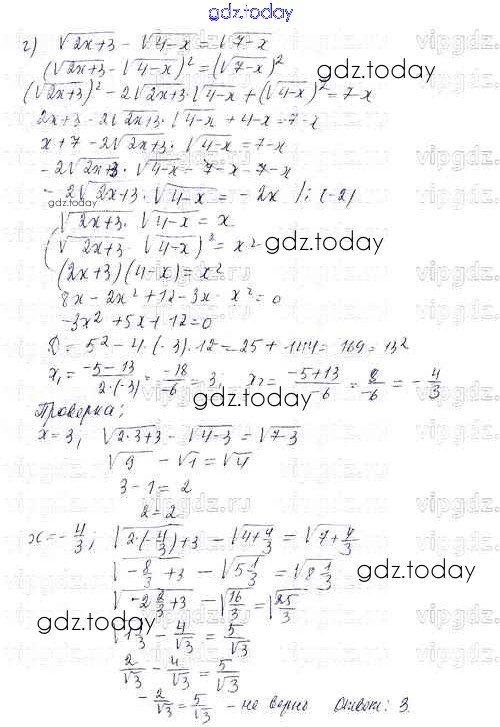 gdz.today
г) √2x+3 - √4-x = √7-x
(√2x+3 - √4-x)² = (√7-x)²
gdz.today
(√2x+3)² - 2√2x+3 · √4-x + (√4-x)² = 7-x
2x+3 - 2√2x+3 · √4-x + 4-x = 7-x
x+7 - 2√2x+3 · √4-x = 7-x
-2√2x+3 · √4-x = 7-x-7-x
-2√2x+3 · √4-x = -2x /: (-2)
gdz.today
√2x+3 · √4-x = x
(√2x+3 · √4-x)² = x²
gdz.today
(2x+3)(4-x) = x²
8x - 2x² + 12 - 3x - x² = 0
-3x² + 5x + 12 = 0
D = 5² - 4·(-3)·12 = 25 + 144 = 169 = 13²
x₁ = -5-13/2·(-3) = -18/-6 = 3; x₂ = -5+13/-6 = 8/-6 = -4/3
gdz.today
Проверка;
x=3; √2·3+3 - √4-3 = √7-3
√9 - √1 = √4
3-1 = 2
2=2
x = -4/3; √2·(-4/3)+3 - √4+4/3 = √7+4/3
√-8/3+3 - √5 1/3 = √8 1/3
gdz.today
√-2 2/3+3 - √16/3 = √25/3
gdz.today
√1/3 - 4/√3 = 5/√3
2/√3 - 4/√3 = 5/√3
-2/√3 = 5/√3 - не верно Ответ: 3
vipgdz.ru
vipgdz.ru
vipgdz.ru
vipgdz.ru
vipgdz.ru
vipgdz.ru